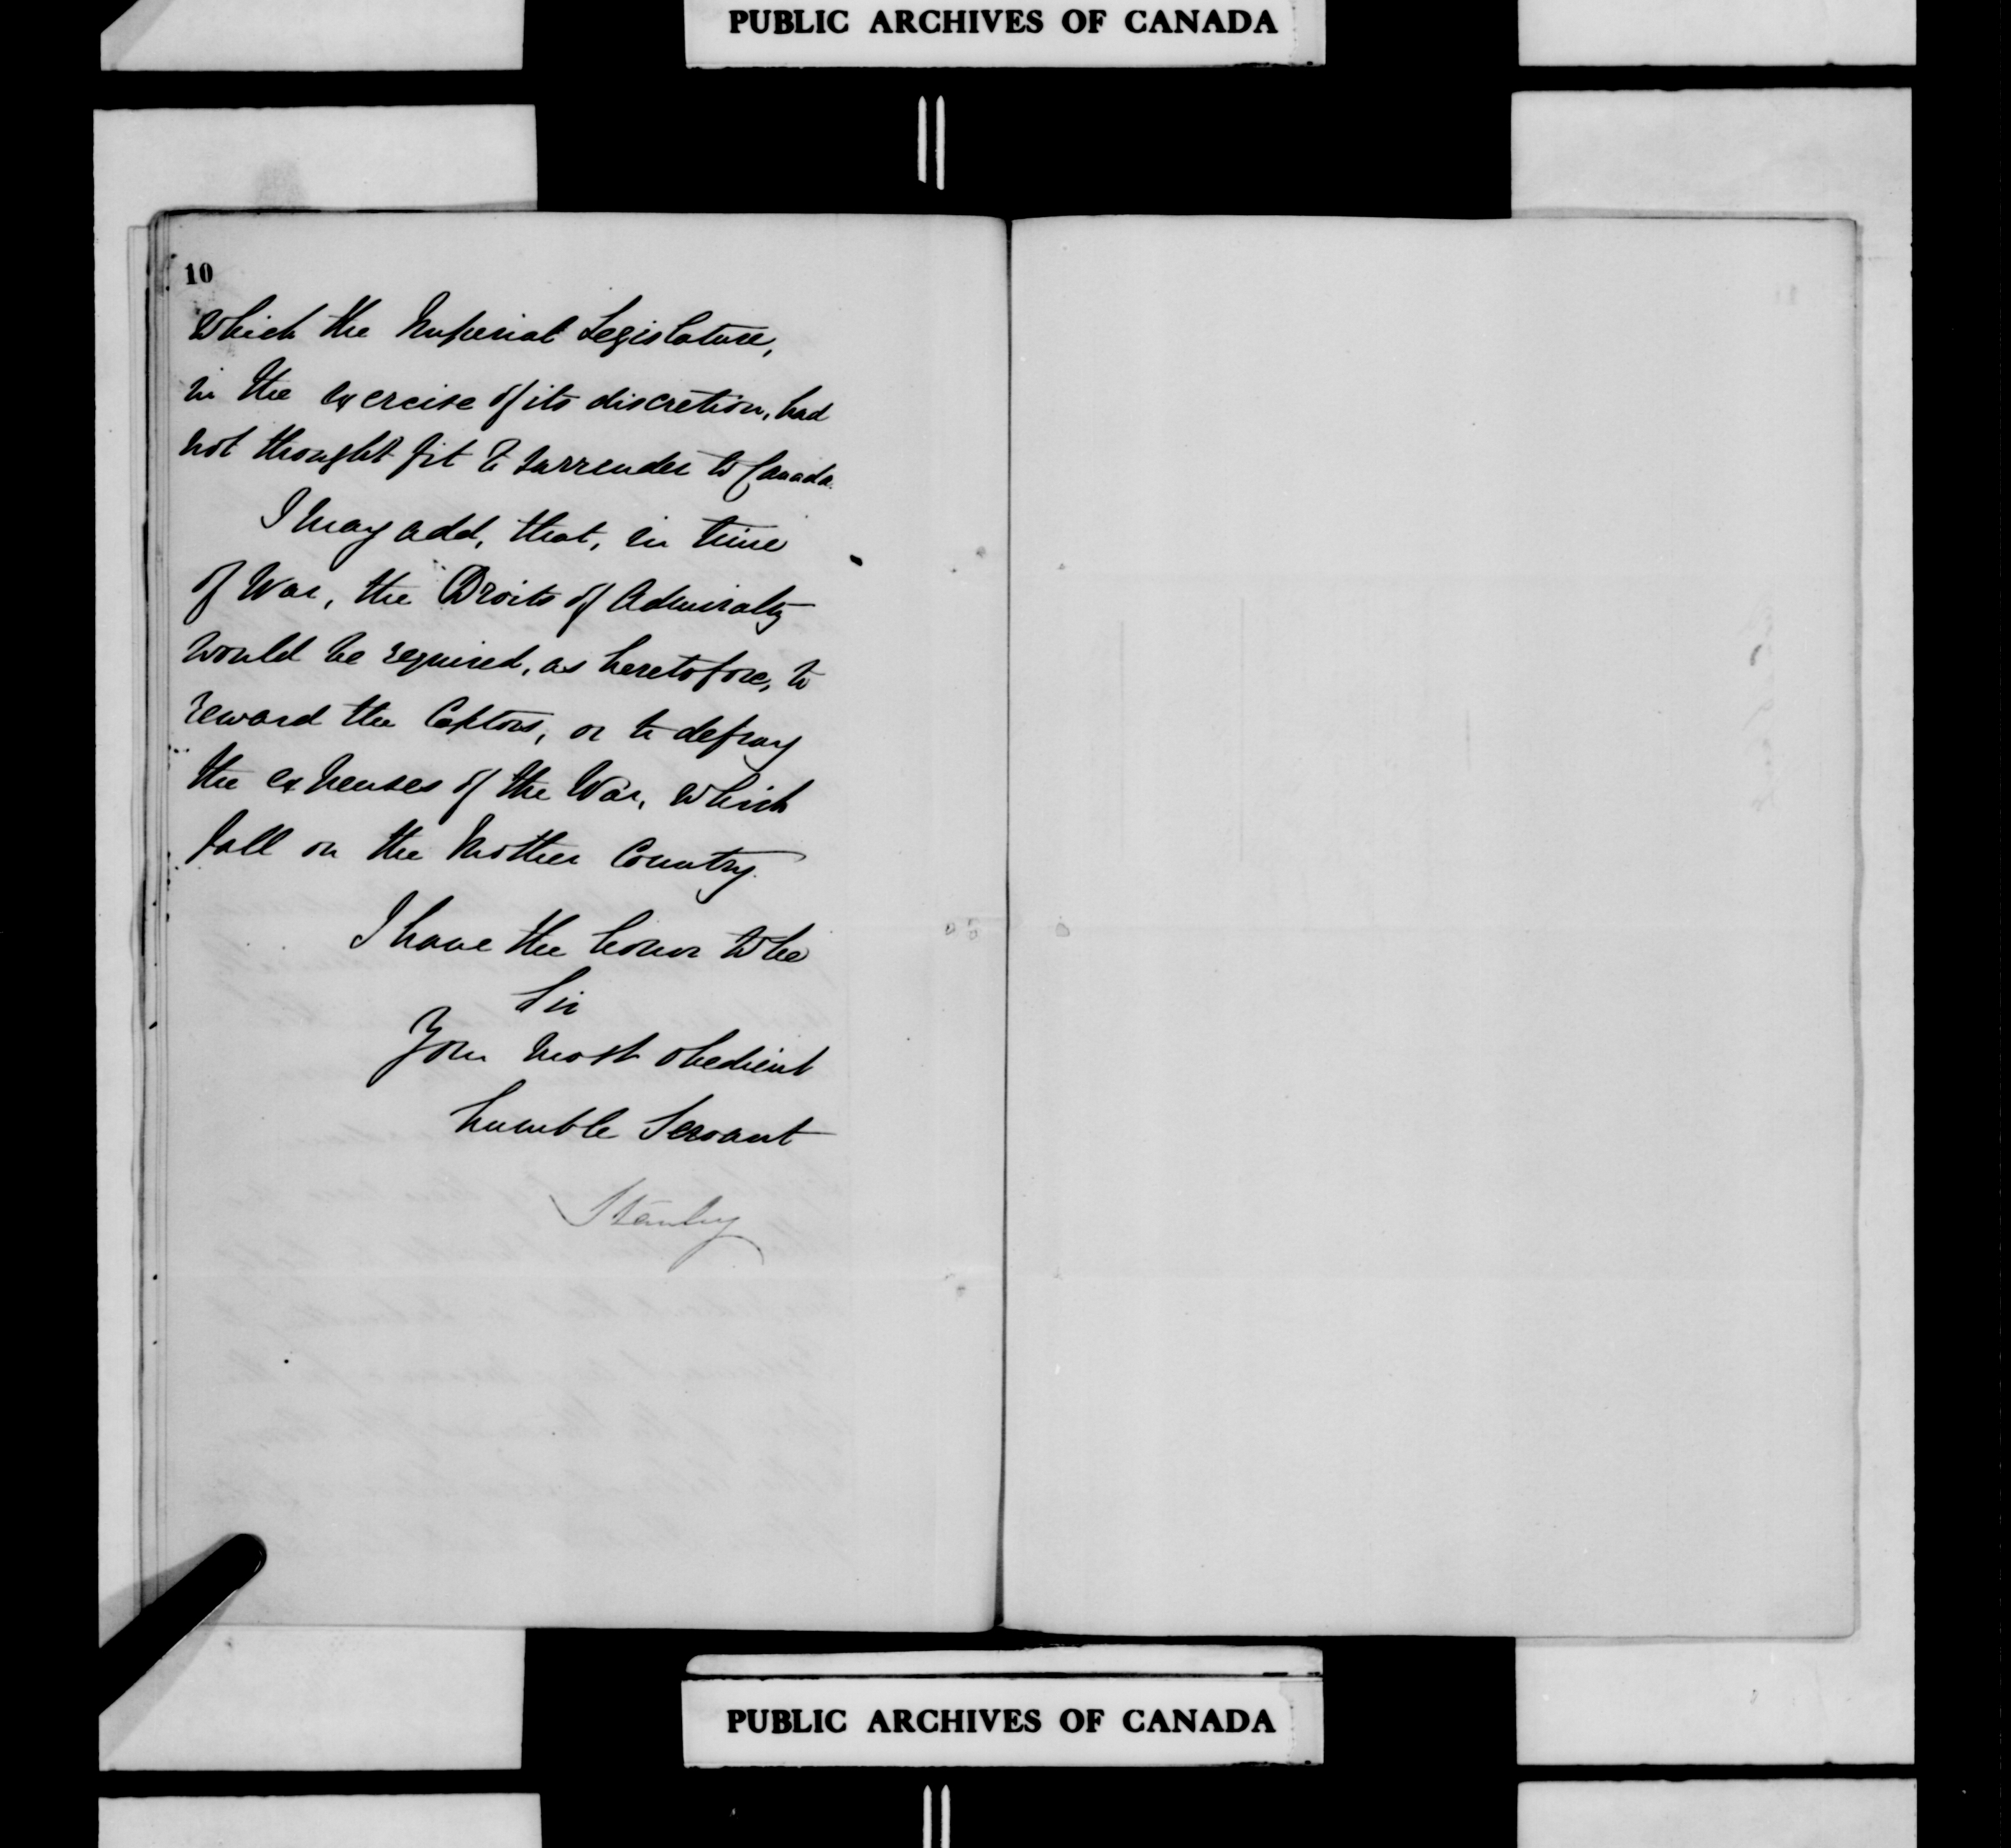 PUBLIC ARCHIVES OF CANADA
10
which the Imperial Legislature,
in the exercise of its discretion, had
not thought fit to surrender to Canada.
I may add, that, in time
of War, the Droits of Admiralty
would be required, as heretofore, to
reward the Captors, or to defray
the expenses of the War, which
fall on the Mother Country.
I have the honor to be
Sir
Your most obedient
humble Servant
Stanley
PUBLIC ARCHIVES OF CANADA